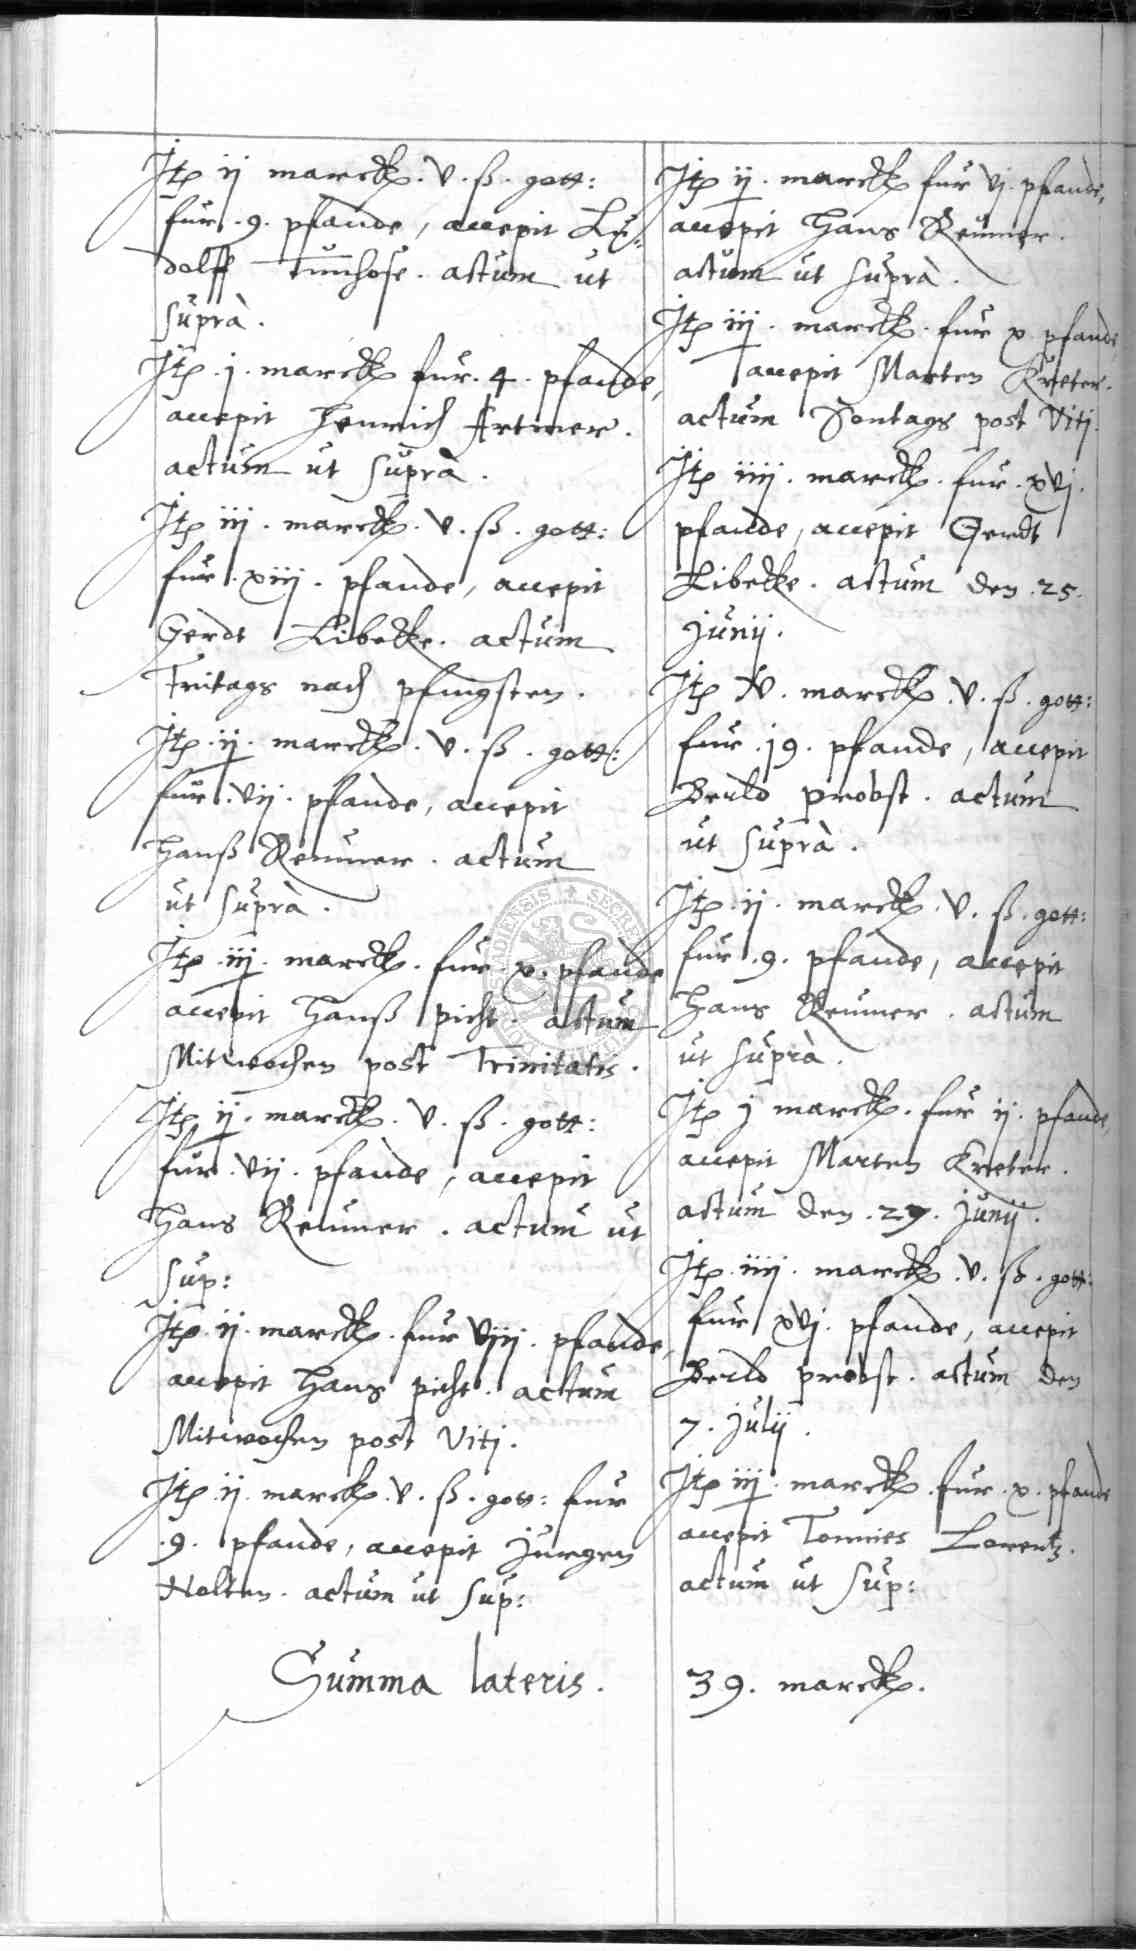 Itz ij marckz. v. ß. gott:
fur .9. pfande, accepit Lu-
dolff Tunhose. actum ut
suprà.
Itz .j. marckz fur .4. pfande,
accepit Henrich Artmer.
actum ut suprà.
Itz iij. marckz. v. ß. gott:
fur .xiij. pfande, accepit
Gerdt Libecke. actum
Fritags nach pfingsten.
Itz .ij. marckz. v. ß. gott:
fur .vij. pfande, accepit
Hanß Remmer. actum
ut suprà.
Itz .iij. marckz. fur .x. pfande
accepit Hanß picht. actum
Mitwochen post Trinitatis.
Itz ij. marckz. v. ß. gott:
fur .vij. pfande, accepit
Hans Remmer. actum ut
sup:
Itz .ij. marckz. fur viij. pfande,
accepit Hans picht. actum
Mitwochen post Viti.
Itz ij. marckz. v. ß. gott: fur
.9. pfande, accepit Jurgen
Nolten. actum ut sup:
Itz ij. marckz fur vj. pfande,
accepit Hans Remmer.
actum ut suprà.
Itz iij. marckz. fur x. pfande,
accepit Marten Kreter.
actum Sontags post Viti.
Itz iiij. marckz. fur .xvj.
pfande, accepit Gerdt
Libecke. actum den .25.
Junij.
Itz iv. marckz. v. ß. gott:
fur .j9. pfande, accepit
probst. actum
ut suprà.
Itz .ij. marckz. v. ß. gott:
fur .9. pfande, accepit
Hans Remmer. actum
ut suprà.
Itz j marckz. fur ij. pfande,
accepit Marten Kreter.
actum den .27. Junij.
Itz .iiij. marckz. v. ß. gott:
fur xvj. pfande, accepit
probst. actum den
7. Julij.
Itz iij. marckz. fur .x. pfande
accepit Tonnies Lorentz.
actum ut sup:
Summa lateris. 39. marckz.